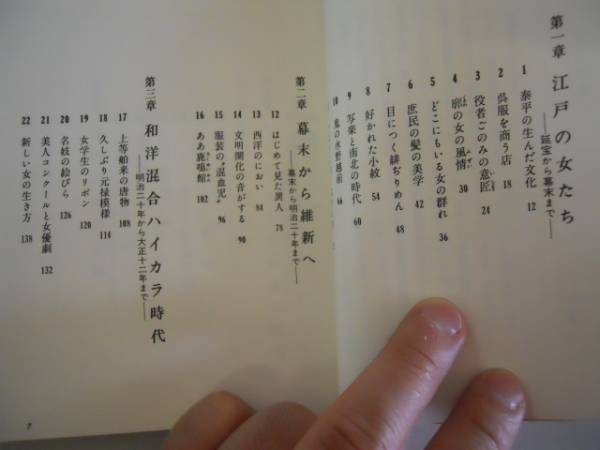 第一章 江戸の女たち
――延宝から幕末まで――
1 泰平の生んだ文化 12
2 呉服を商う店 18
3 役者ごのみの意匠 24
4 廓の女の風情 30
5 どこにもいる女の群れ 36
6 庶民の髪の美学 42
7 目につく緋ぢりめん 48
8 好かれた小紋 54
9 写楽と南北の時代 60
10 鬼の水野越前 66
第二章 幕末から維新へ
――幕末から明治二十年まで――
12 はじめて見た異人 78
13 西洋のにおい 84
14 文明開化の音がする 90
15 服装の“混血児” 96
16 ああ鹿鳴館 102
第三章 和洋混合ハイカラ時代
――明治二十年から大正十二年まで――
17 上等舶来の唐物 108
18 久しぶり元禄模様 114
19 女学生のリボン 120
20 名妓の絵びら 126
21 美人コンクールと女優劇 132
22 新しい女の生き方 138
7